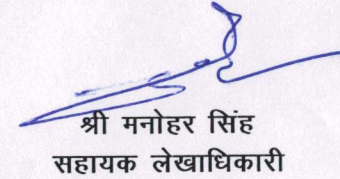 श्री मनोहर सिंह
सहायक लेखाधिकारी